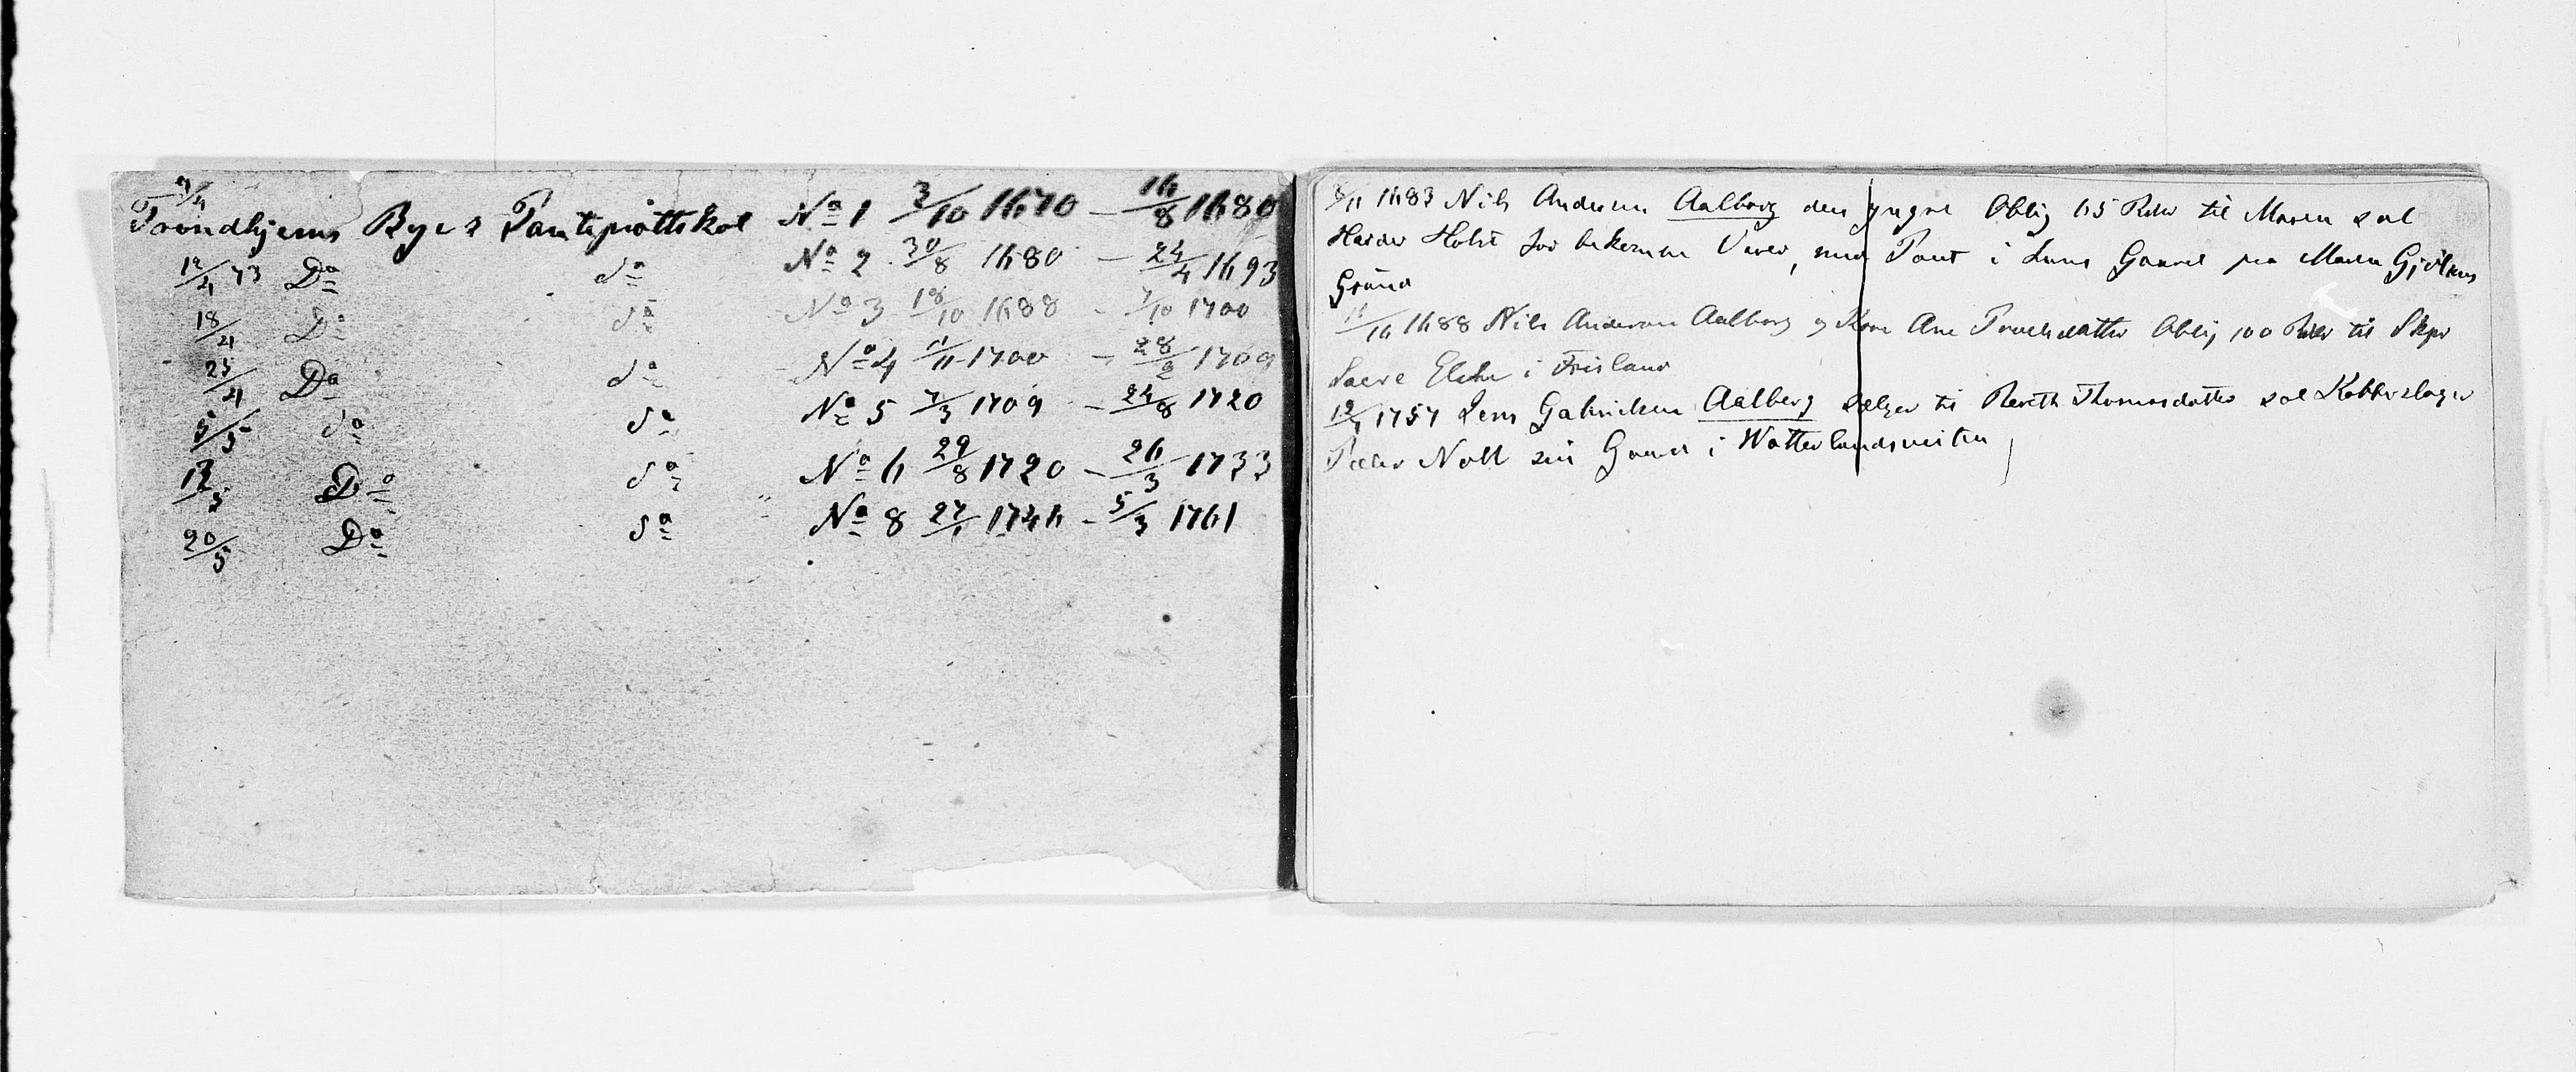 9/4
Trondhjems Byes Panteprottokol No 1 3/10 1670 – 16/8 1680
12/4 73 Do do No 2 30/8 1680 – 24/4 1693
18/4 Do do No 3 18/10 1688 – 7/10 1700
25/4 Do do No 4 11/11 1700 – 28/2 1709
5/5 do do No 5 7/3 1709 – 24/8 1720
12/5 Do do No 6 29/8 1720 – 26/3 1733
20/5 Do do No 8 27/1 1746 – 5/3 1761
8/11 1683 Nils Andersen Aalborg den yngre Oblig 65 Rdlr til Maren sal
Harder Holst for bekomne Varer, med Pant i hans Gaard paa Maren Gjøtkens
Grund
1688 Nils Andersen Aalborg og Kone Ane Truelsdatter Oblig 100 Rdlr til Skpr
i Frisland
12/1 1757 Jens Gabrielsen Aalberg sælger til Bereth Thomasdatter sal Kobberslager
Peder Noll sin Gaard i Watterlandsveiten